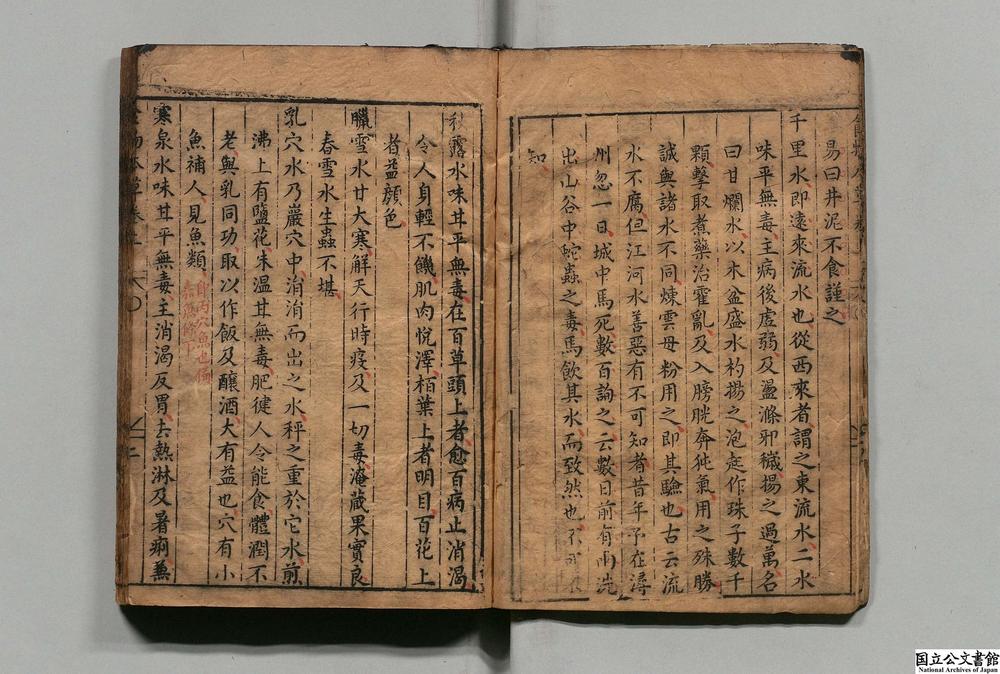 易曰井泥不食謹之
千里水即遠來流水也從西來者謂之東流水二水
味平無毒主病後虛弱及盪滌邪穢揚之過萬名
曰甘爛水以木盆盛水杓揚之泡起作珠子數千
顆擊取煮藥治霍亂及入膀胱奔㹠氣用之殊勝
誠與諸水不同煉雲母粉用之即其驗也古云流
水不腐但江河水善惡有不可知者昔年予在潯
州忽一日城中馬死數百詢之云數日前有雨洗
出山谷中蛇蟲之毒馬飲其水而致然也不可不
知
秋露水味甘平無毒在百草頭上者愈百病止消渴
令人身輕不饑肌肉悅澤栢葉上者明目百花上
者益顏色
臘雪水甘大寒解天行時疫及一切毒淹藏果實良
春雪水生蟲不堪
乳穴水乃巖穴中涓涓而出之水秤之重於它水煎
沸上有鹽花味温甘無毒肥健人令能食體潤不
老與乳同功取以作飯及釀酒大有益也穴有小
魚補人見魚類
即丙穴魚也
寒泉水味甘平無毒主消渴反胃去熱淋及暑痢兼
国立公文書館
National Archives of Japan